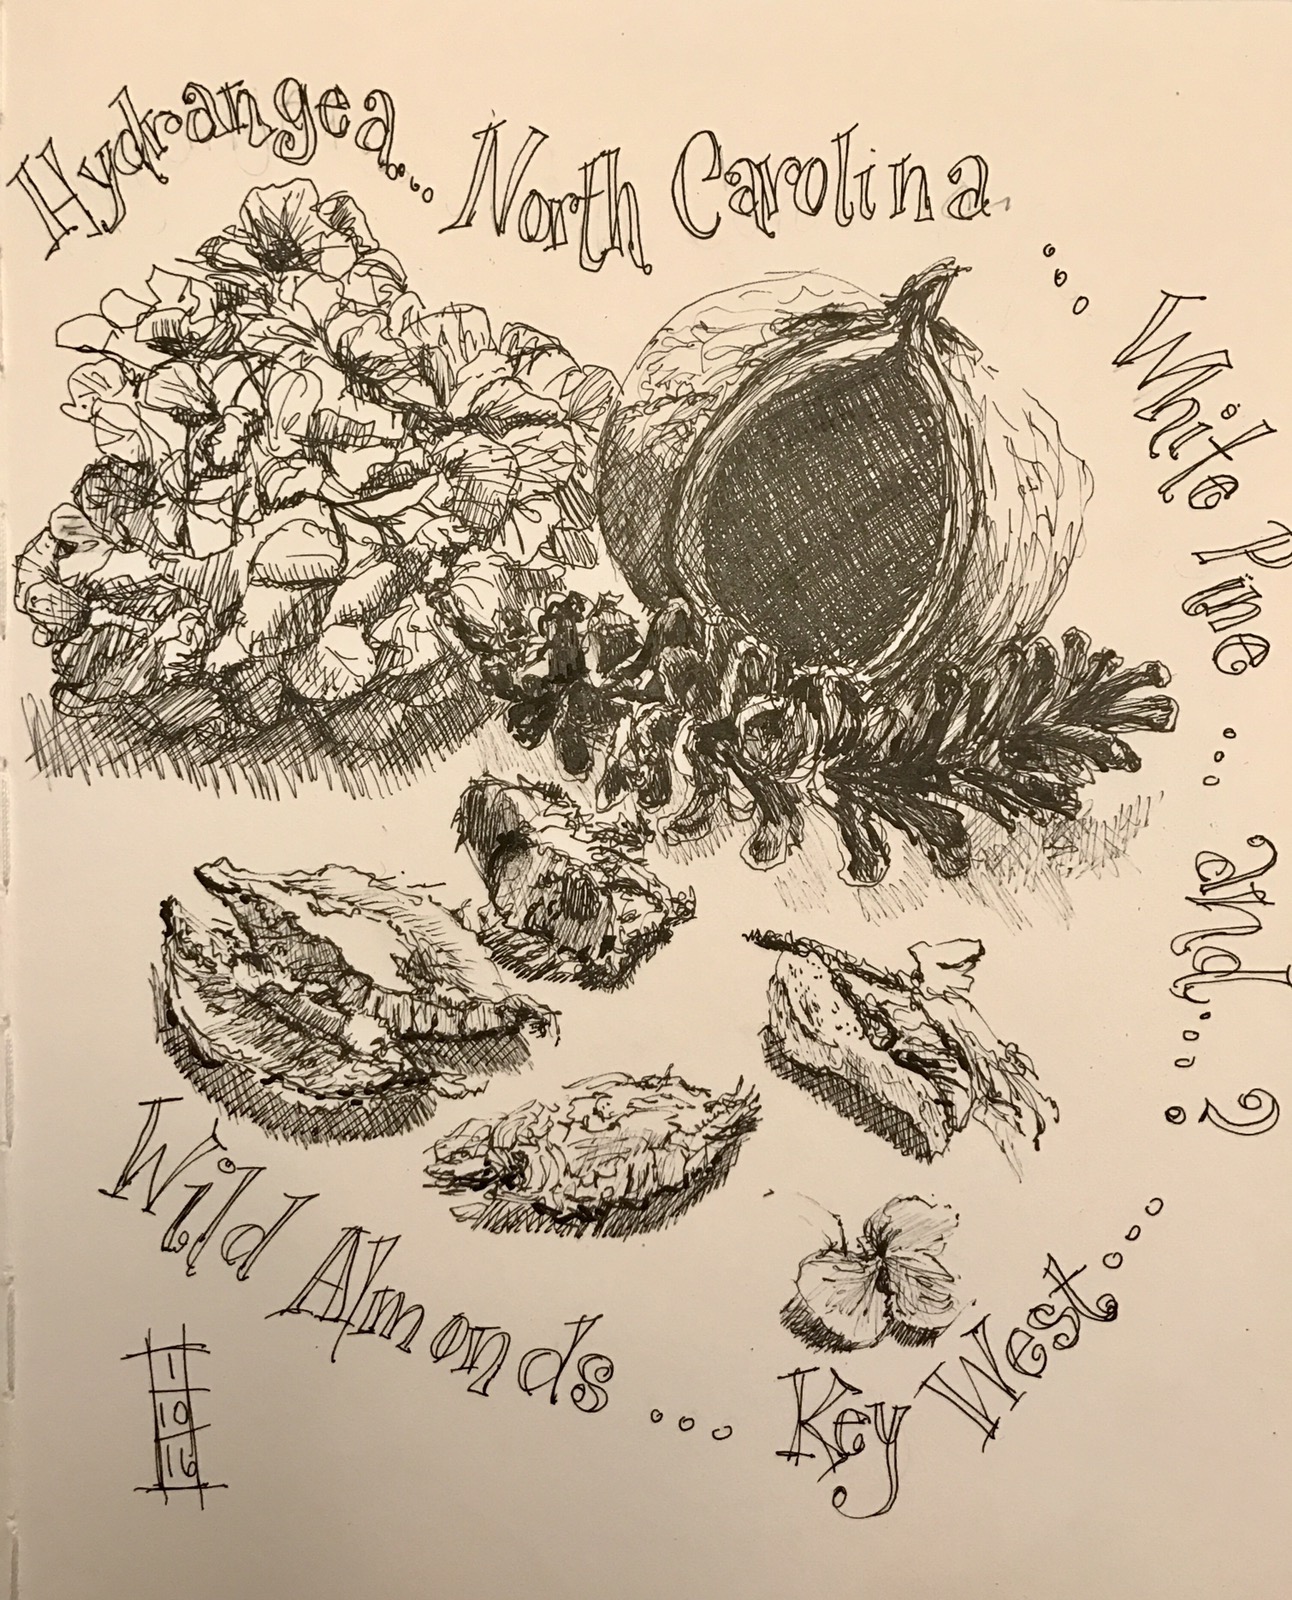 Hydrangea... North Carolina
... White Pine ... and,...?
Wild Almonds ... Key West...
1
10
16